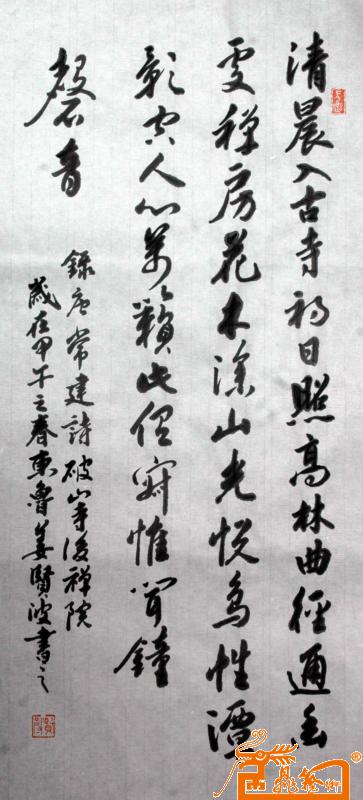 清晨入古寺初日照高林曲徑通幽
處禅房花木深山光悦鳥性潭
影空人心萬籟此俱寂惟聞鐘
磬音
錄唐常建詩破山寺後禅院
歲在甲午之春東魯姜賢波書之